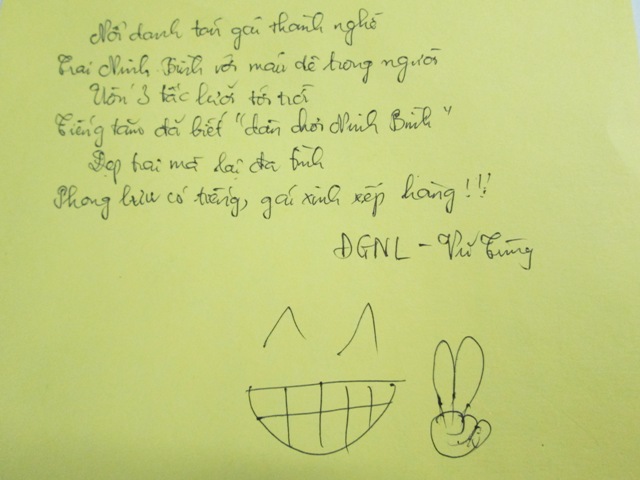 Nổi danh tán gái thành nghề
Trai Ninh Bình với máu dê trong người
Uốn 3 tấc lưỡi tới trời
Tiếng tăm đã biết "dân chơi Ninh Bình"
Đẹp trai mà lại đa tình
Phong lưu có tiếng, gái xinh xếp hàng!!!
ĐGNL - Vũ Tùng